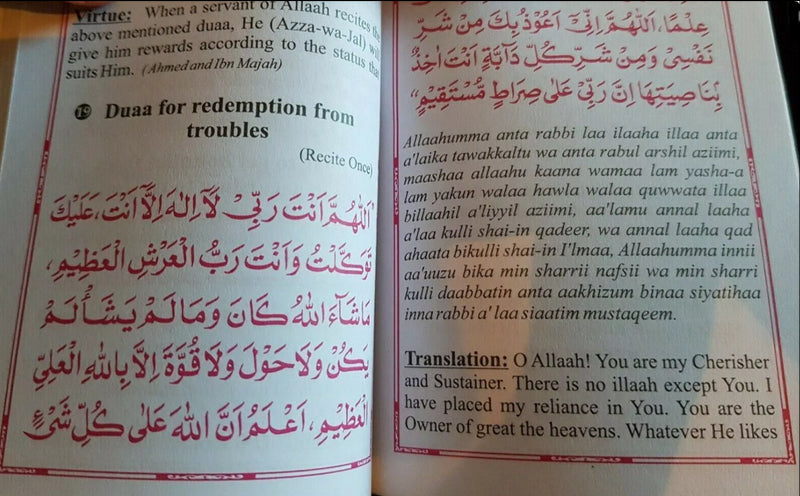 Virtue: When a servant of Allaah recites the
above mentioned duaa, He (Azza-wa-Jal) will
give him rewards according to the status that
suits Him. (Ahmed and Ibn Majah)
19 Duaa for redemption from
troubles
(Recite Once)
اَللّٰهُمَّ اَنْتَ رَبِّيْ لَآ اِلٰهَ اِلَّا اَنْتَ، عَلَيْكَ
تَوَكَّلْتُ وَاَنْتَ رَبُّ الْعَرْشِ الْعَظِيْمِ،
مَاشَآءَ اللّٰهُ كَانَ وَمَا لَمْ يَشَأْ لَمْ
يَكُنْ وَلَا حَوْلَ وَلَا قُوَّةَ اِلَّا بِاللّٰهِ الْعَلِيِّ
الْعَظِيْمِ، اَعْلَمُ اَنَّ اللّٰهَ عَلٰى كُلِّ شَيْءٍ
عِلْمًا، اَللّٰهُمَّ اِنِّيْ اَعُوْذُ بِكَ مِنْ شَرِّ
نَفْسِيْ وَمِنْ شَرِّ كُلِّ دَآبَّةٍ اَنْتَ اٰخِذٌ
بِّنَاصِيَتِهَا اِنَّ رَبِّيْ عَلٰى صِرَاطٍ مُّسْتَقِيْمٍ"
Allaahumma anta rabbi laa ilaaha illaa anta
a'laika tawakkaltu wa anta rabul arshil aziimi,
maashaa allaahu kaana wamaa lam yasha-a
lam yakun walaa hawla walaa quwwata illaa
billaahil a'liyyil aziimi, aa'lamu annal laaha
a'laa kulli shai-in qadeer, wa annal laaha qad
ahaata bikulli shai-in I'lmaa, Allaahumma innii
aa'uuzu bika min sharrii nafsii wa min sharri
kulli daabbatin anta aakhizum binaa siyatihaa
inna rabbi a' laa siaatim mustaqeem.
Translation: O Allaah! You are my Cherisher
and Sustainer. There is no illaah except You. I
have placed my reliance in You. You are the
Owner of great the heavens. Whatever He likes